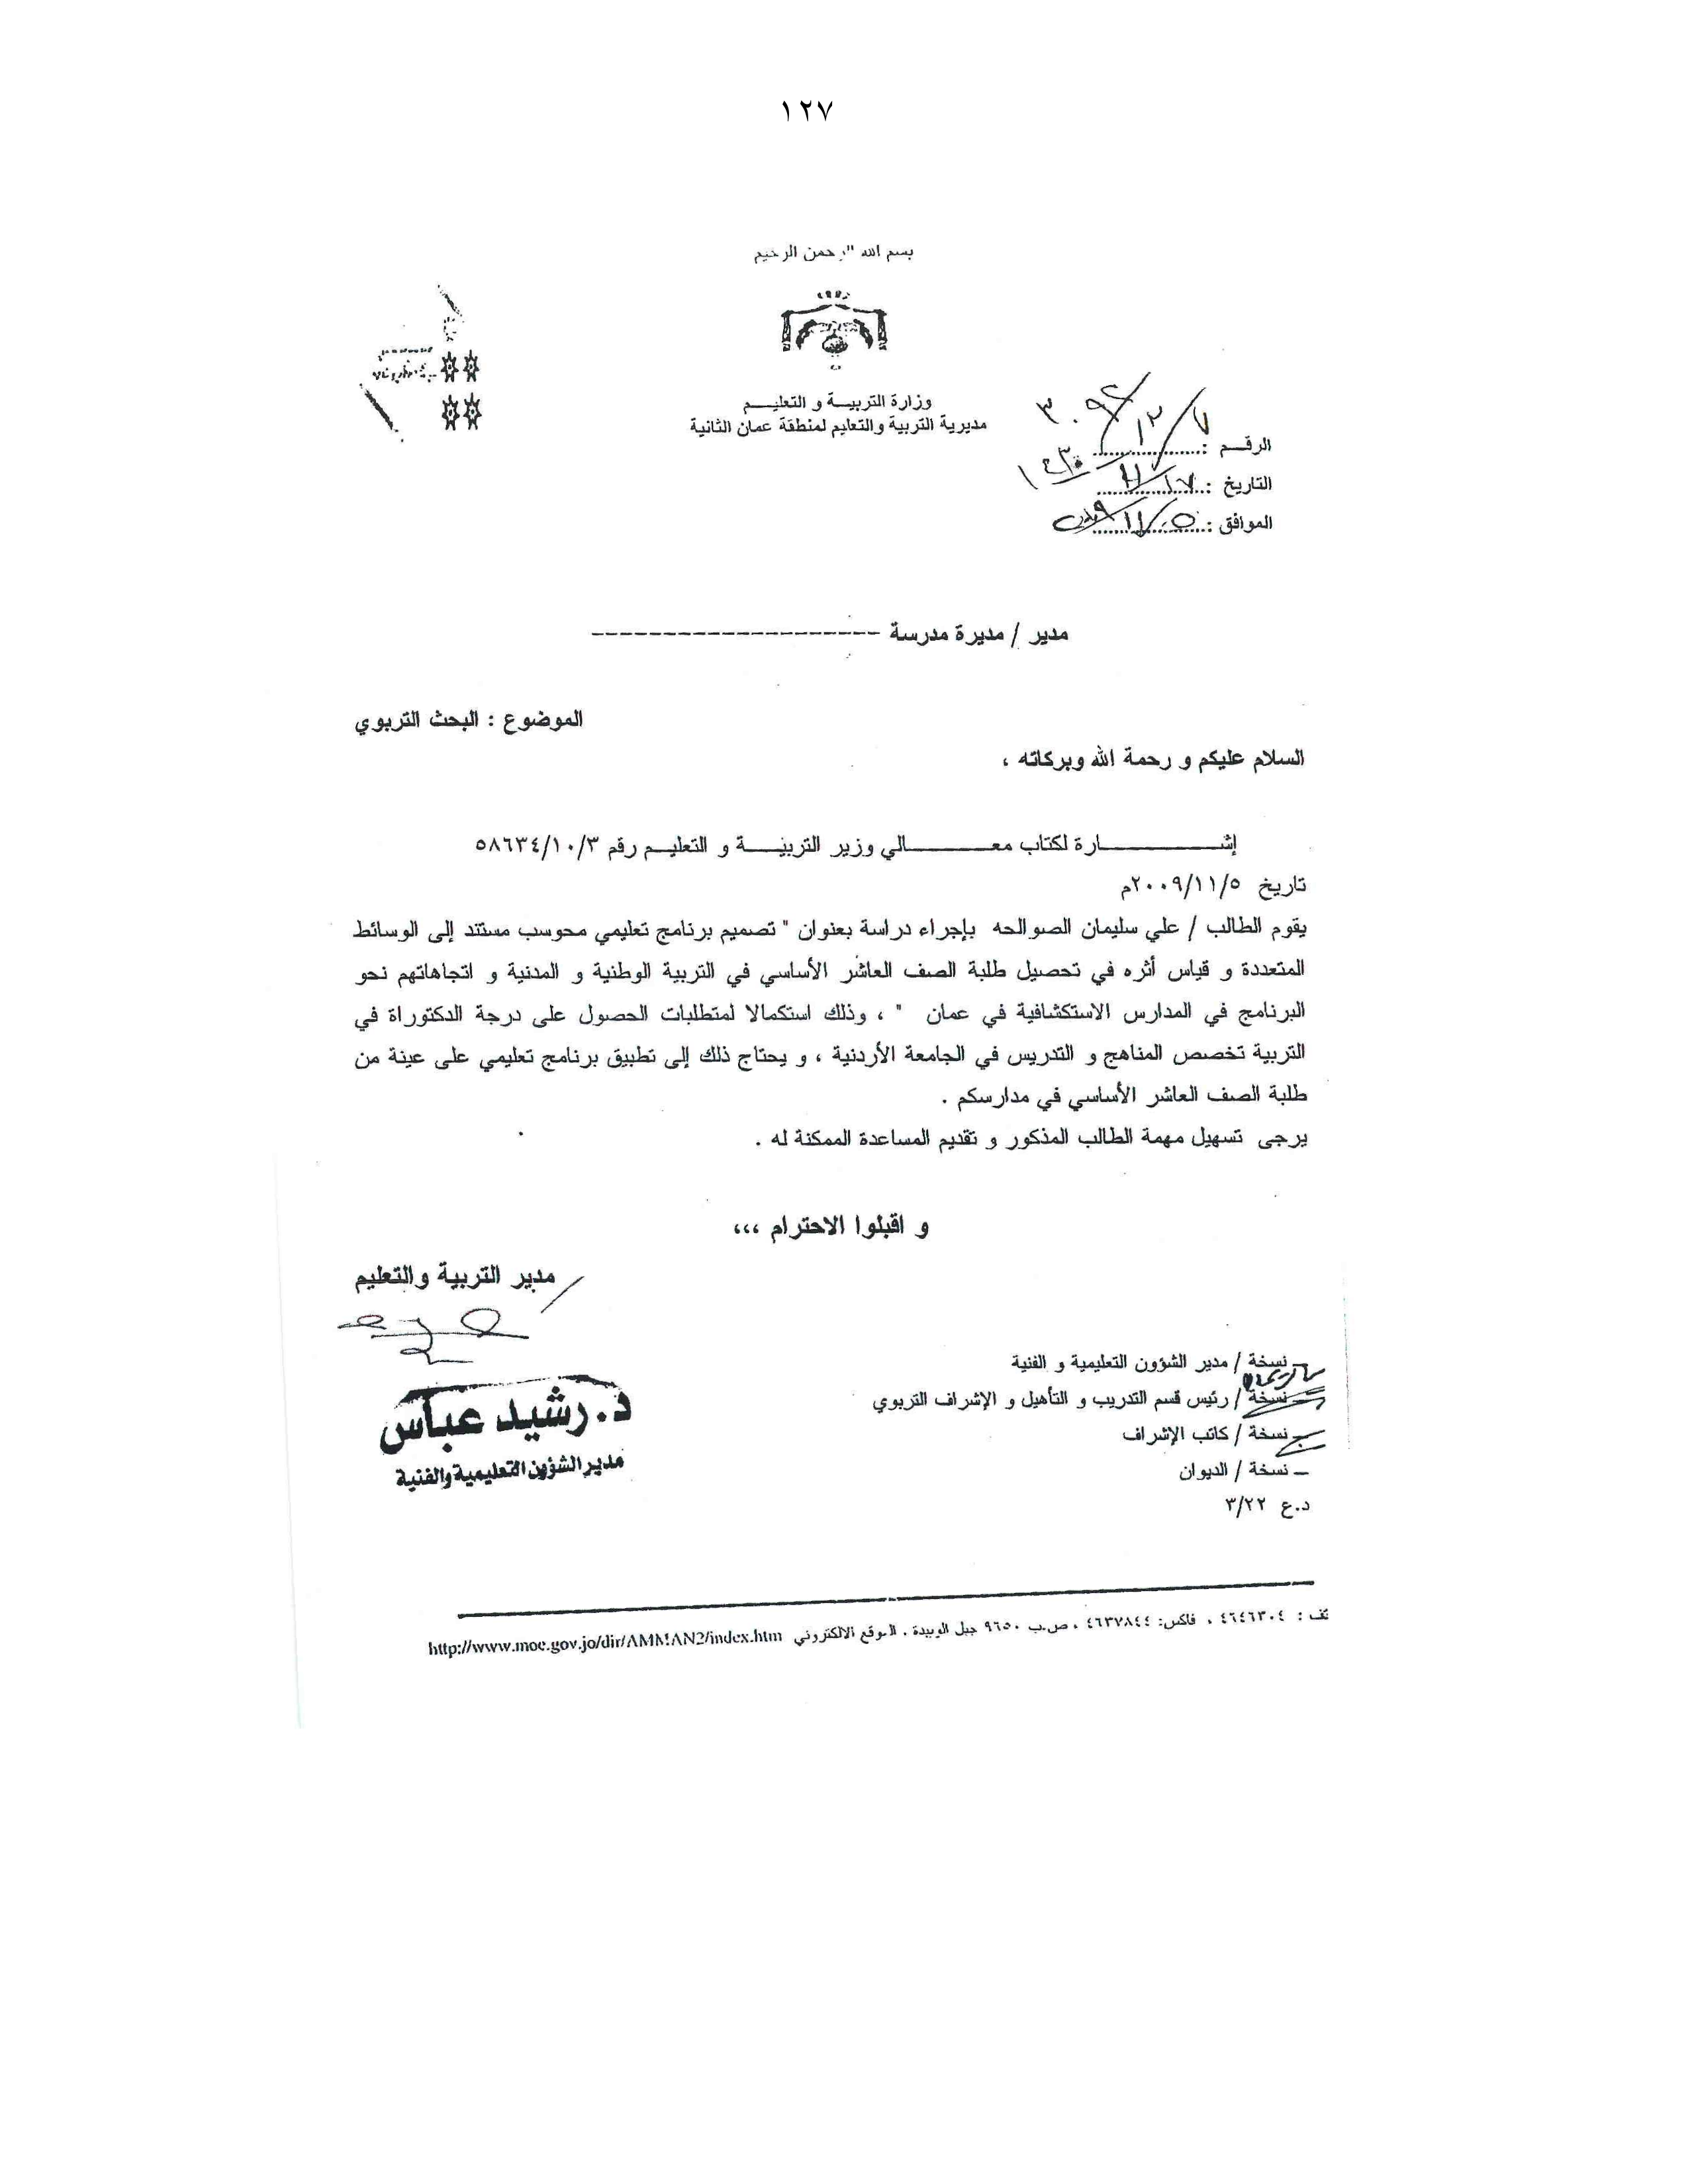 ١٢٧
بسم الله الرحمن الرحيم
وزارة التربيـــة و التعليـــم
مديرية التربية والتعليم لمنطقة عمان الثانية
الرقــم : ٣٠٩٤/١٢/٧
التاريخ : ١٤٣٠/١١/١٧
الموافق : ٢٠٠٩/١١/٠٥
مدير / مديرة مدرسة --------------------
الموضوع : البحث التربوي
السلام عليكم و رحمة الله وبركاته ،
إشــــــــــارة لكتاب معـــــــــالي وزير التربيــــة و التعليــم رقم ٥٨٦٣٤/١٠/٣
تاريخ ٢٠٠٩/١١/٥م
يقوم الطالب / علي سليمان الصوالحه بإجراء دراسة بعنوان " تصميم برنامج تعليمي محوسب مستند إلى الوسائط
المتعددة و قياس أثره في تحصيل طلبة الصف العاشر الأساسي في التربية الوطنية و المدنية و اتجاهاتهم نحو
البرنامج في المدارس الاستكشافية في عمان " ، وذلك استكمالا لمتطلبات الحصول على درجة الدكتوراة في
التربية تخصص المناهج و التدريس في الجامعة الأردنية ، و يحتاج ذلك إلى تطبيق برنامج تعليمي على عينة من
طلبة الصف العاشر الأساسي في مدارسكم .
يرجى تسهيل مهمة الطالب المذكور و تقديم المساعدة الممكنة له .
و اقبلوا الاحترام ،،،
مدير التربية والتعليم
د. رشيد عباس
مدير الشؤون التعليمية والفنية
نسخة / مدير الشؤون التعليمية و الفنية
نسخة / رئيس قسم التدريب و التأهيل و الإشراف التربوي
نسخة / كاتب الإشراف
ـ نسخة / الديوان
د.ع ٣/٢٢
تف : ٤٦٤٦٣٠٤ ، فاكس: ٤٦٣٧٨٤٤ ، ص.ب ٩٦٥٠ جبل الويبدة . الموقع الالكتروني http://www.moe.gov.jo/dir/AMMAN2/index.htm